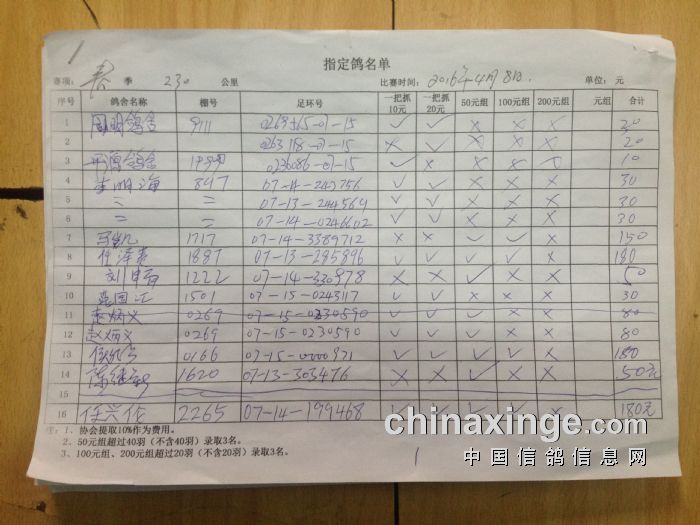 1
指定鸽名单
赛项： 春 季 230 公里 比赛时间：2016年4月8日. 单位：元
序号 鸽舍名称 棚号 足环号 一把抓10元 一把抓20元 50元组 100元组 200元组 元组 合计
1 9111 ✓ ✓ × × × 30
2 × ✓ × × × 20
3 ✓ × × × × 10
4 李明海 897 07-14-242756 ✓ ✓ × × × 30
5 = = 07-13-244569 ✓ ✓ × × × 30
6 = = 07-14-0246602 ✓ ✓ × × × 30
7 马凯 1717 07-14-3389712 × × ✓ ✓ × 150
8 任泽春 1887 07-13-285896 ✓ ✓ ✓ ✓ × 180
9 1222 07-14-330978 × × ✓ × × 50
10 1501 07-15-0243117 ✓ ✓ × × × 30
11 赵炳义 0269 07-15-0230590 ✓ ✓ ✓ × × 80
12 赵炳义 0269 07-15-0230590 ✓ ✓ ✓ × × 80
13 0166 07-15-0000971 ✓ ✓ ✓ ✓ × 180
14 1620 07-13-303476 × × ✓ × × 50元
15
16 任兴佐 2265 07-14-199468 ✓ ✓ ✓ ✓ × 180元
注：1、协会提取10%作为费用。
2、50元组超过40羽（不含40羽）录取3名。
3、100元组、200元组超过20羽（不含20羽）录取3名。
1
chinaxinge.com
中国信鸽信息网